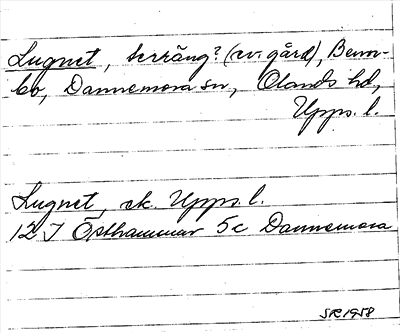 Lugnet, terräng? (ev. gård), Bem-
bo, Dannemora sn, Olands hd,
Upps. l.
Lugnet, ek. Upps. l.
12 I Östhammar 5c Dannemora
SR 1958